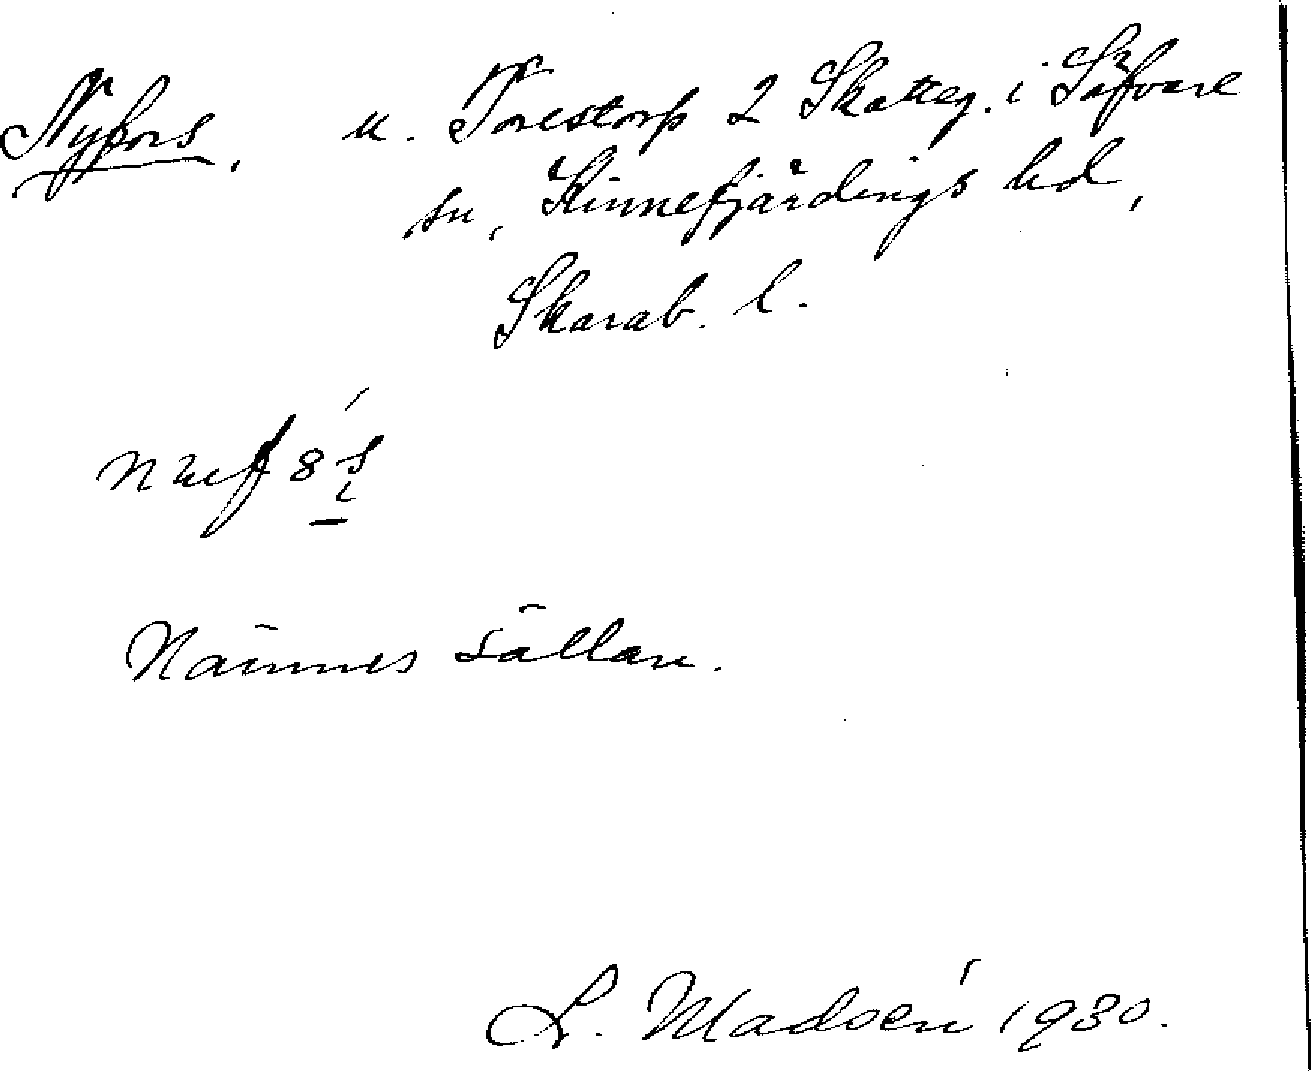 Nyfors. u. Torestorp 2 Skatteg. i Säfvare
sn, Kinnefjärdings hd,
Skarab. l.
Nämnes sällan.
L. Madsén 1930.